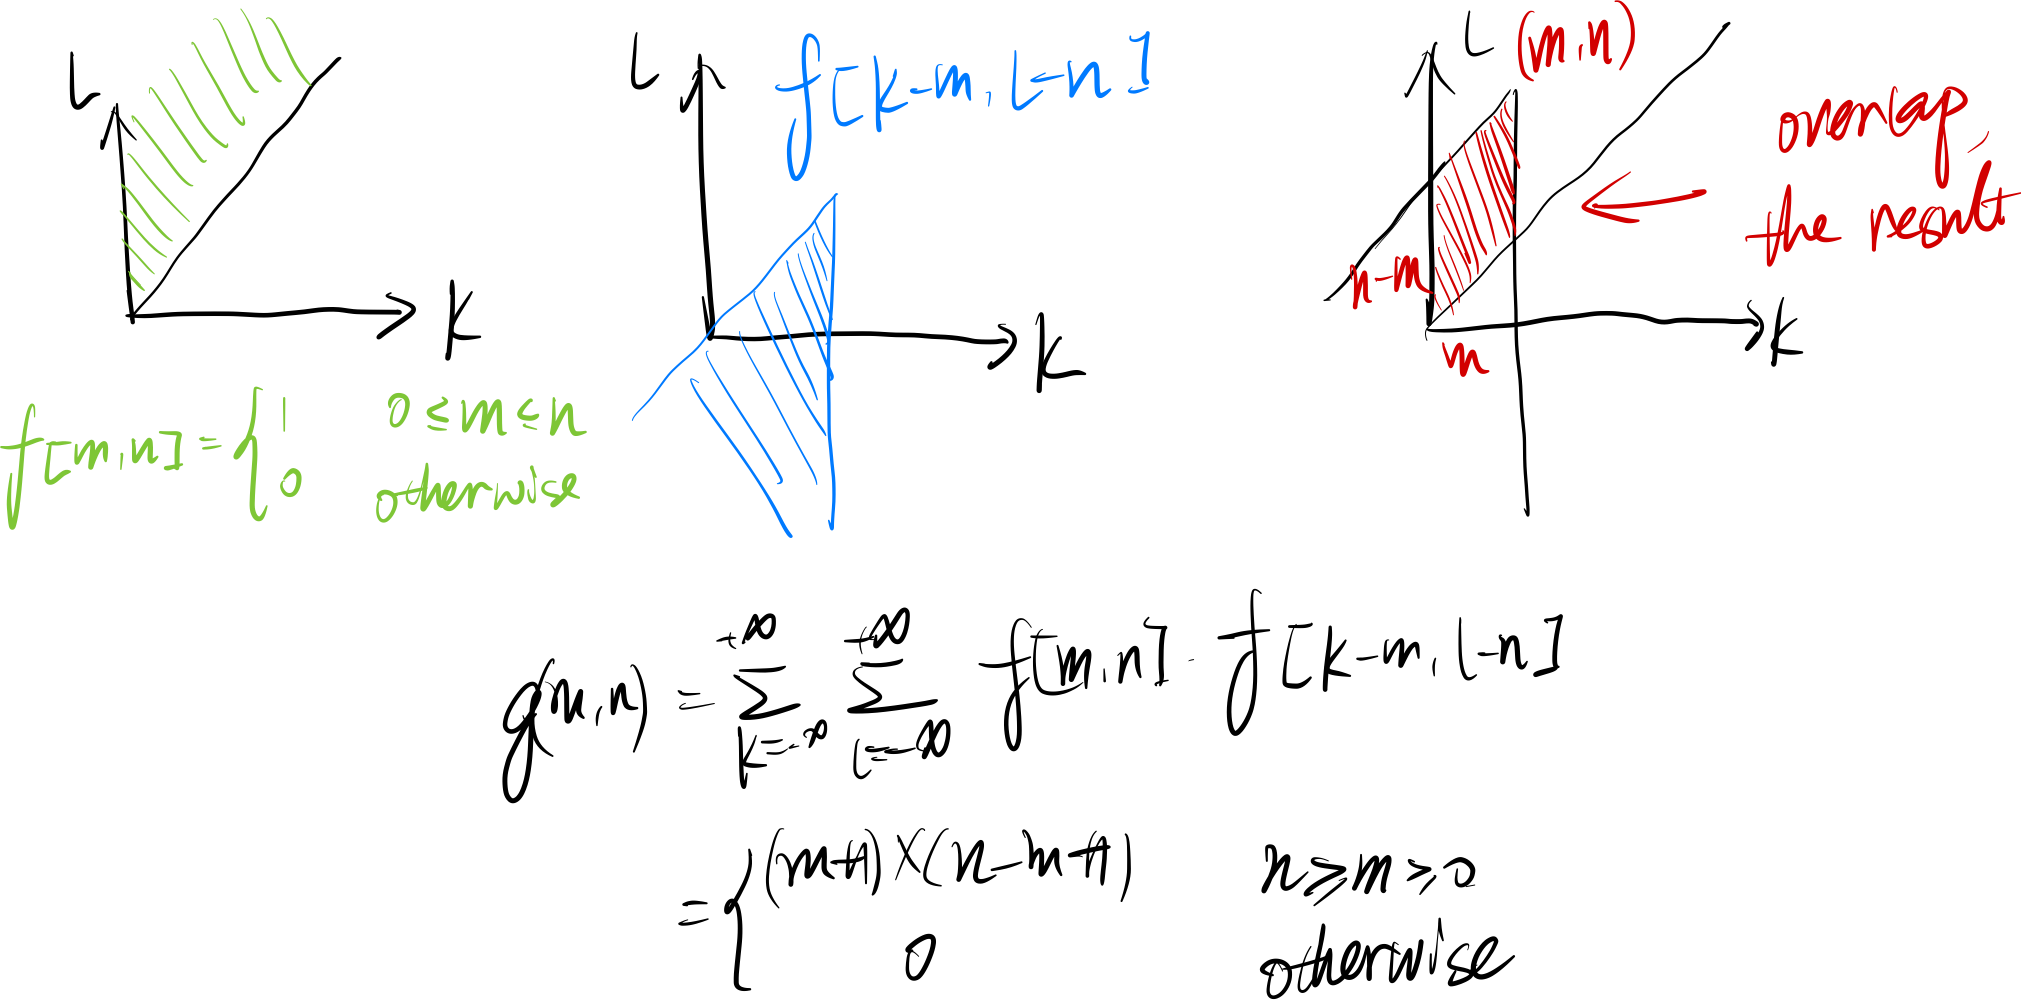 L
K
f[m,n] = { 1 0≤m≤n
0 otherwise
L
f[k-m, l-n]
K
L (m,n)
overlap,
the result
n-m
m
K
g(m,n) = \sum_{k=-∞}^{+∞} \sum_{l=-∞}^{+∞} f[m,n] · f[k-m, l-n]
= { (m+1)×(n-m+1) n≥m≥0
0 otherwise